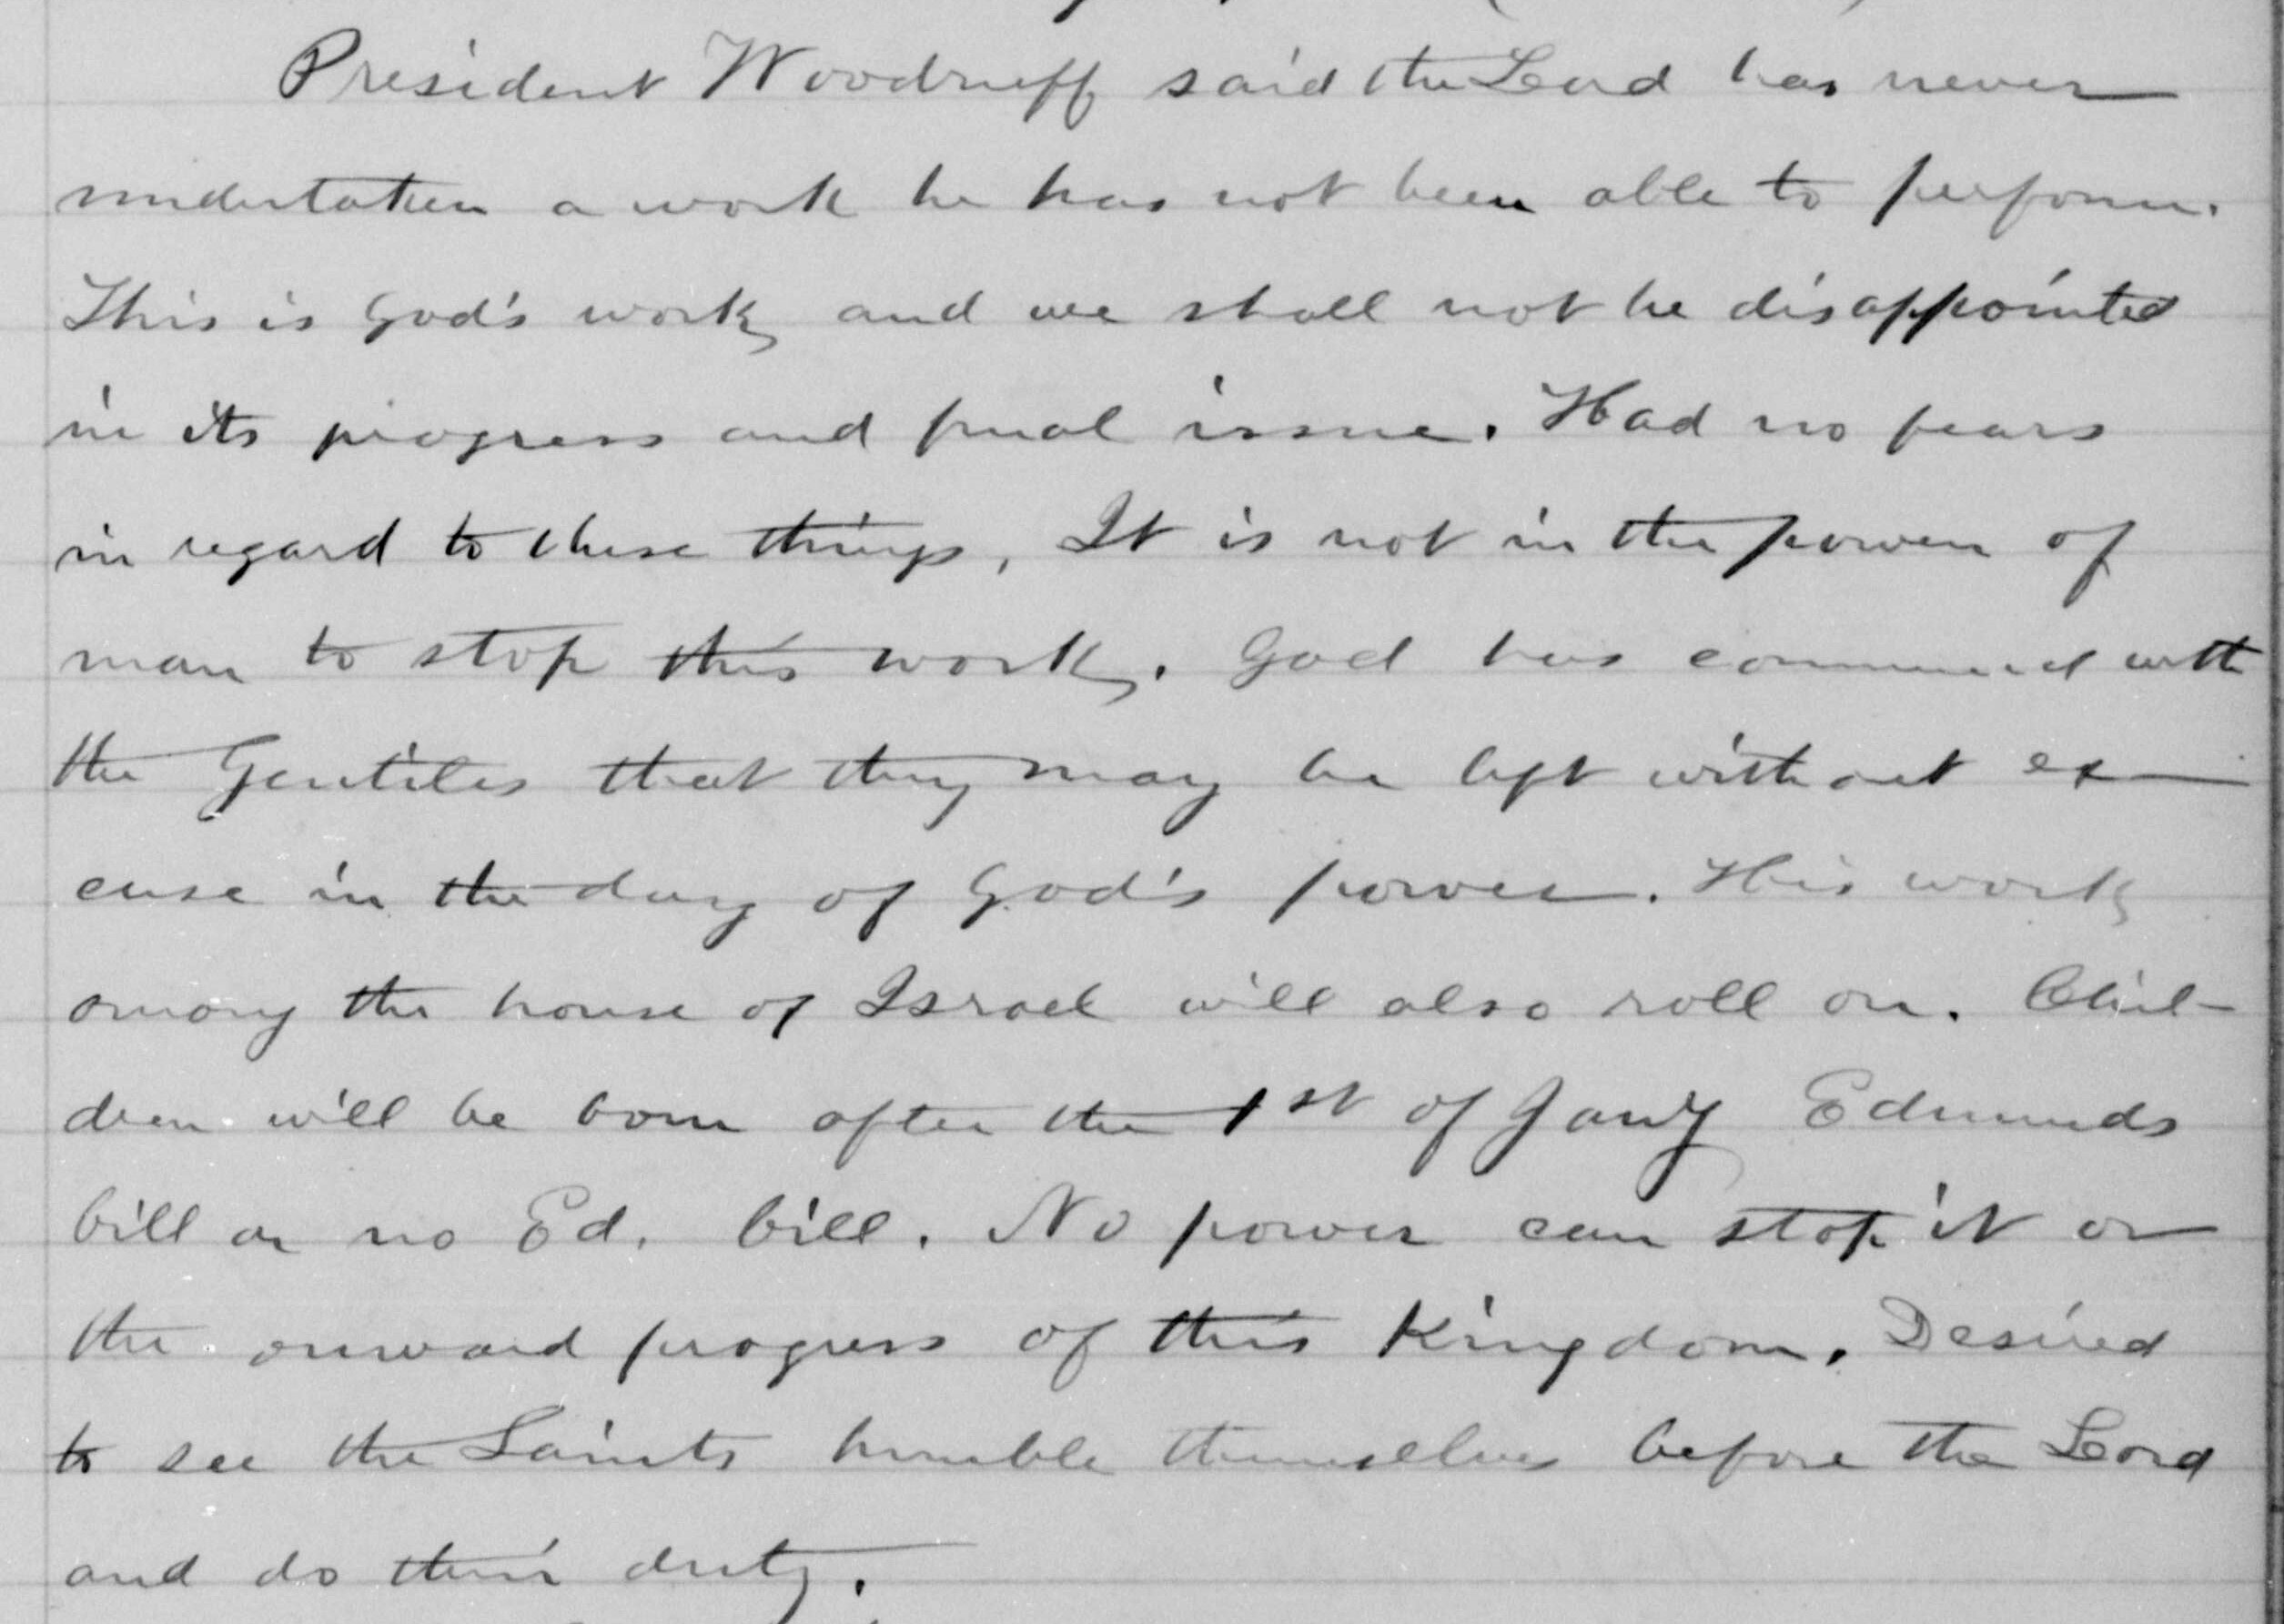 President Woodruff said the Lord has never
undertaken a work he has not been able to perform.
This is God's work and we shall not be disappointed
in its progress and final issue. Had no fears
in regard to these things, It is not in the power of
man to stop this work. God has commenced with
the Gentiles that they may be left without ex-
cuse in the day of God's power. His work
among the house of Israel will also roll on. Chil-
dren will be born after the 1st of Jany Edmunds
bill or no Ed. bill. No power can stop it or
the onward progress of this Kingdom. Desired
to see the Saints humble themselves before the Lord
and do their duty.